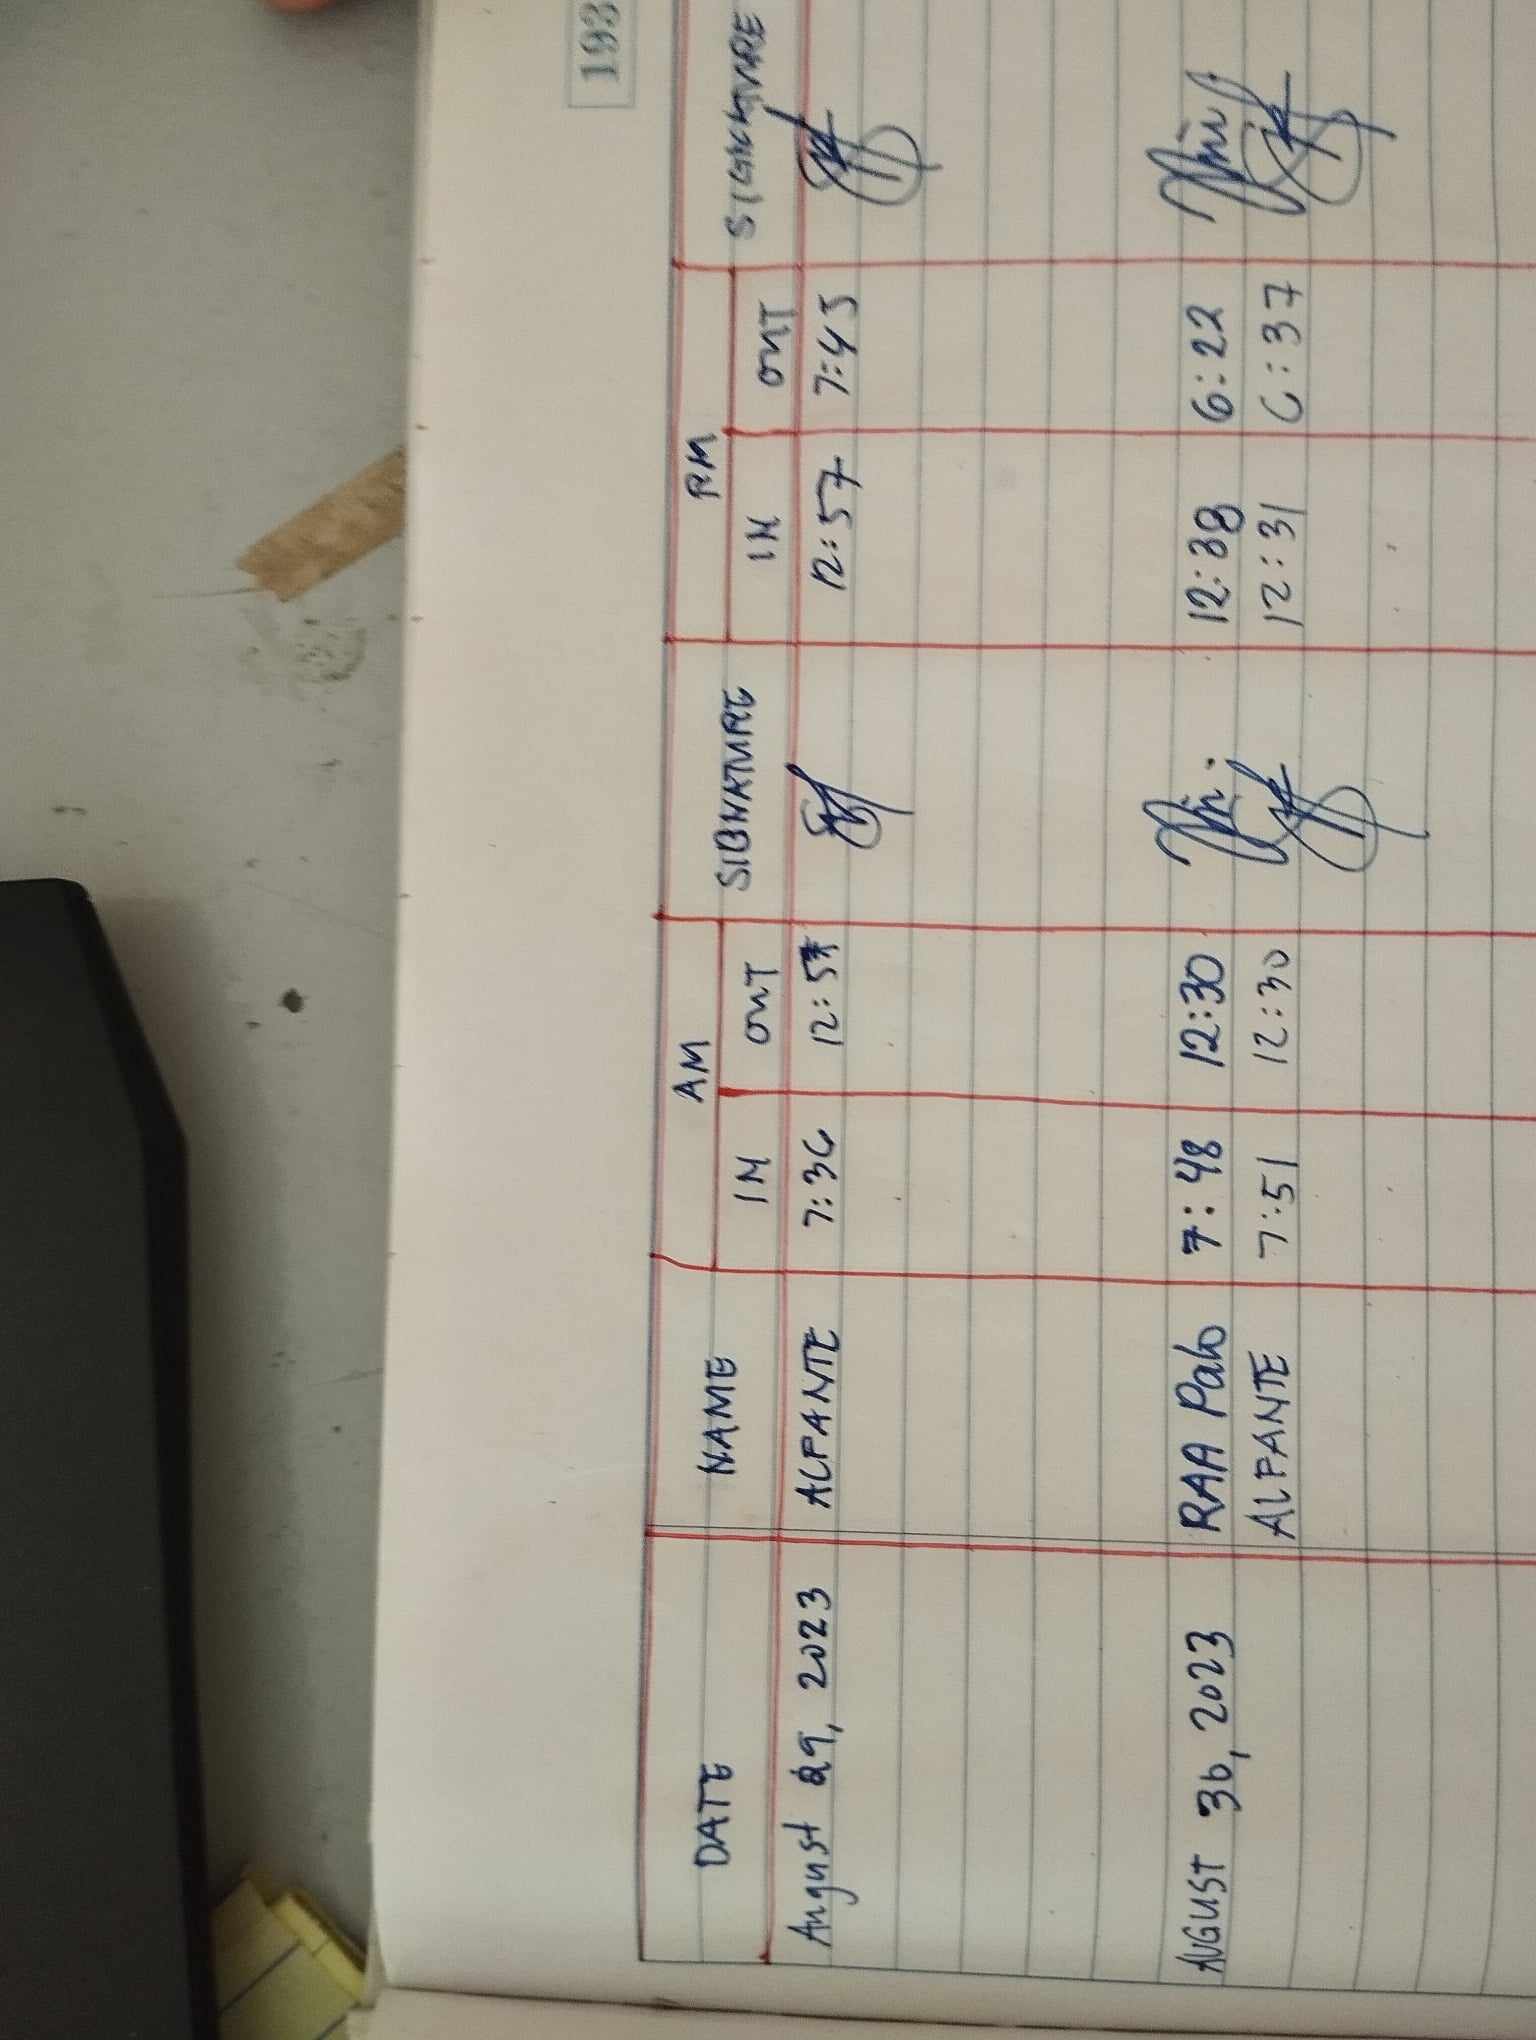 193
DATE NAME AM SIGNATURE PM SIGNATURE
IN OUT IN OUT
August 29, 2023 ALPANTE 7:36 12:57 12:57 7:45
AUGUST 30, 2023 RAA Palo 7:48 12:30 12:38 6:22
ALPANTE 7:51 12:30 12:31 6:37